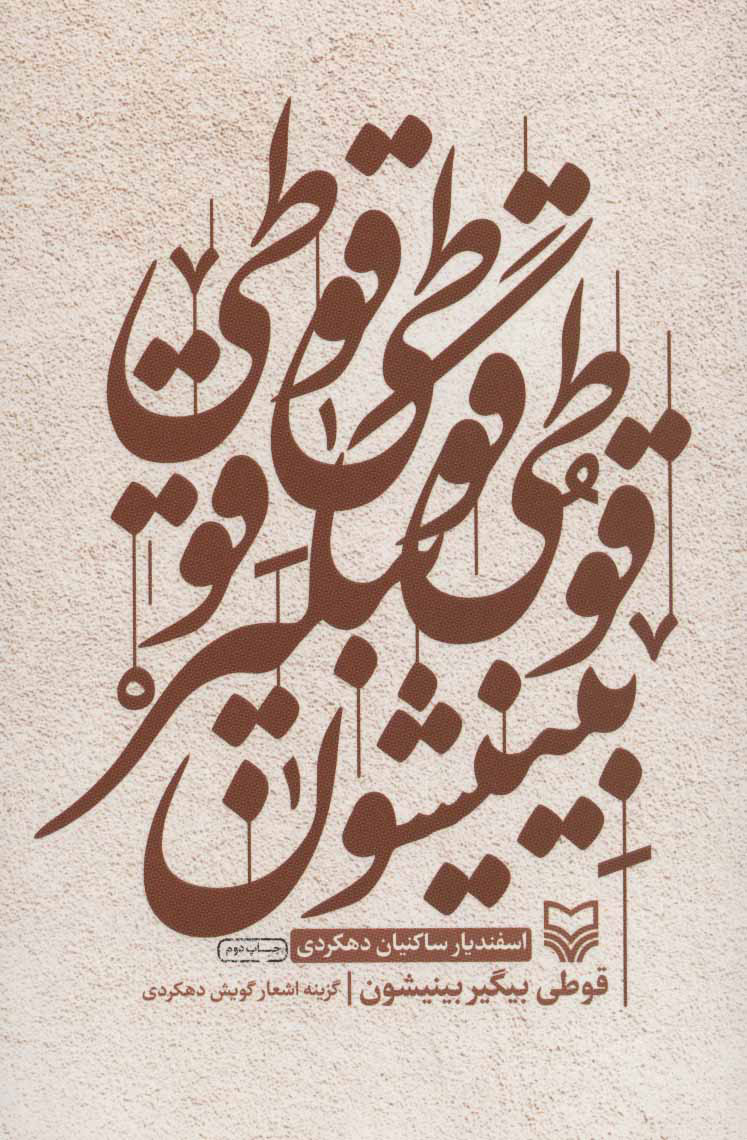 قوطی قوطی
قوطی بیگیر
بینیشون
اسفندیار ساکنیان دهکردی
چاپ دوم
قوطی بیگیر بینیشون | گزینه اشعار گویش دهکردی